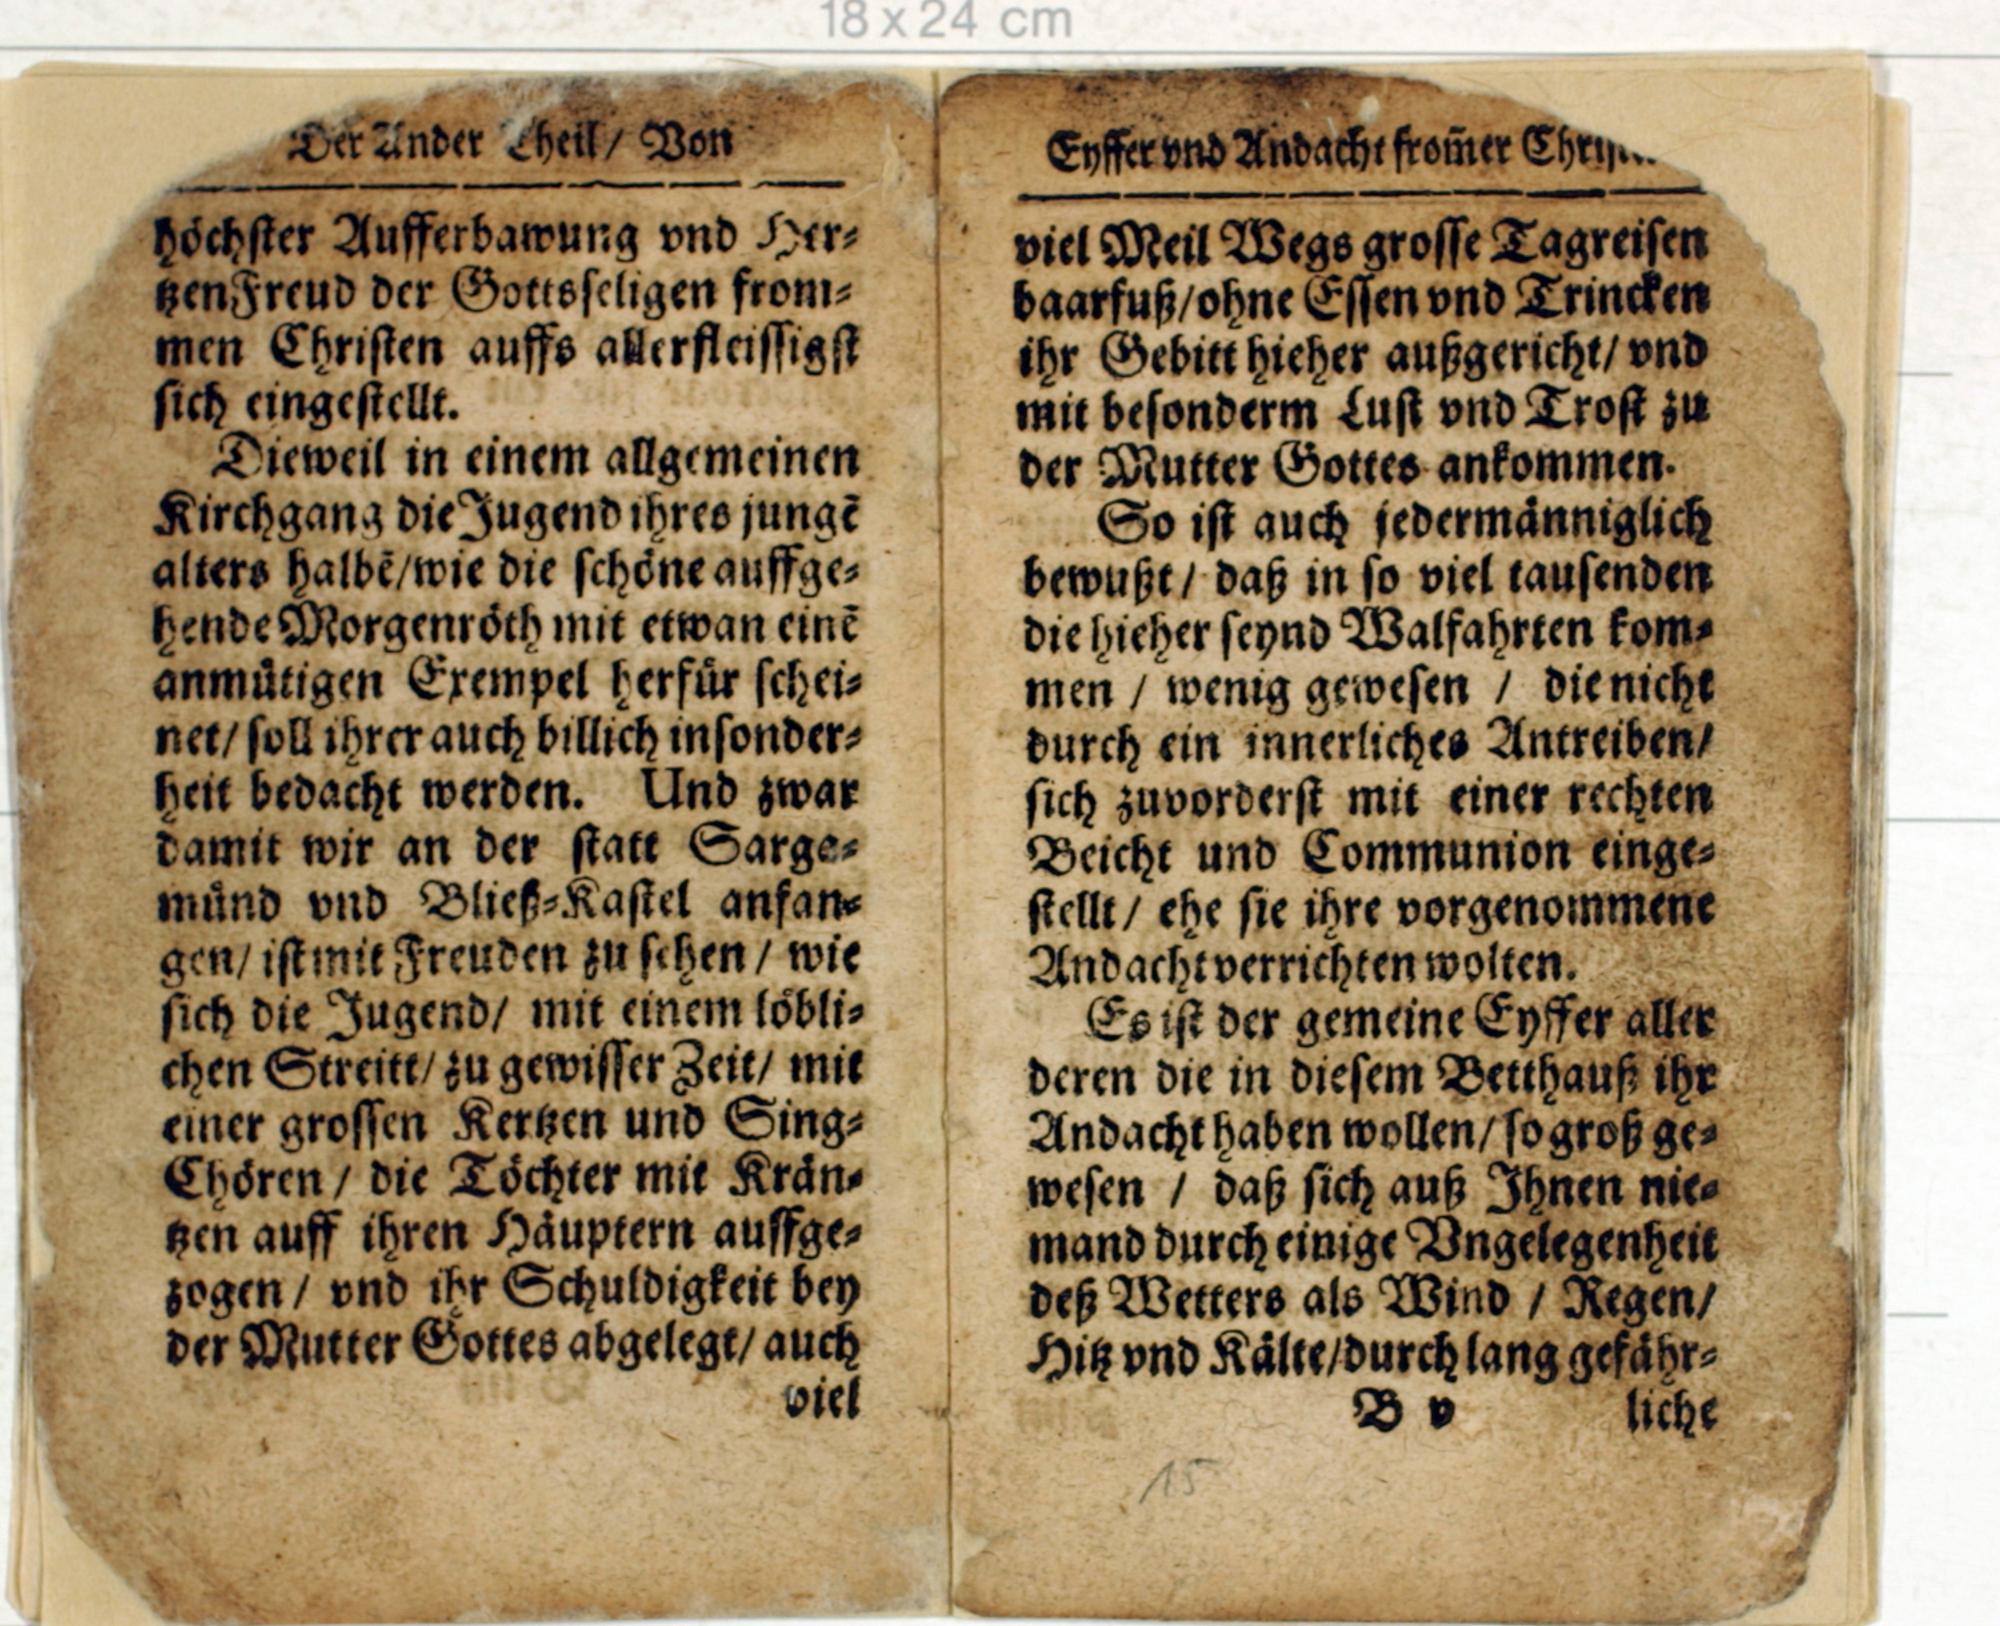 18 x 24 cm
Der Ander Theil / Von
höchster Aufferbawung vnd Her⸗
tzenFreud der Gottsseligen from⸗
men Christen auffs allerfleissigst
sich eingestellt.
Dieweil in einem allgemeinen
Kirchgang die Jugend ihres jungē
alters halbē/wie die schöne auffge⸗
hende Morgenröth mit etwan einē
anmütigen Exempel herfür schei⸗
net/ soll ihrer auch billich insonder⸗
heit bedacht werden. Und zwar
damit wir an der statt Sarge⸗
münd vnd Bließ⸗Kastel anfan⸗
gen/ ist mit Freuden zu sehen / wie
sich die Jugend/ mit einem löbli⸗
chen Streitt/ zu gewisser Zeit/ mit
einer grossen Kertzen und Sing⸗
Chören / die Töchter mit Krän⸗
tzen auff ihren Häuptern auffge⸗
zogen / vnd ihr Schuldigkeit bey
der Mutter Gottes abgelegt/ auch
viel
Eyffer vnd Andacht from̃er
viel Meil Wegs grosse Tagreisen
baarfuß/ohne Essen vnd Trincken
ihr Gebitt hieher außgericht/ vnd
mit besonderm Lust vnd Trost zu
der Mutter Gottes ankommen.
So ist auch jedermänniglich
bewußt / daß in so viel tausenden
die hieher seynd Walfahrten kom⸗
men / wenig gewesen / die nicht
durch ein innerliches Antreiben/
sich zuvorderst mit einer rechten
Beicht und Communion einge⸗
stellt / ehe sie ihre vorgenommene
Andacht verrichten wolten.
Es ist der gemeine Eyffer aller
deren die in diesem Betthauß ihr
Andacht haben wollen/ so groß ge⸗
wesen / daß sich auß Ihnen nie⸗
mand durch einige Vngelegenheit
deß Wetters als Wind / Regen/
Hitz vnd Kälte/durch lang gefähr⸗
B v liche
15